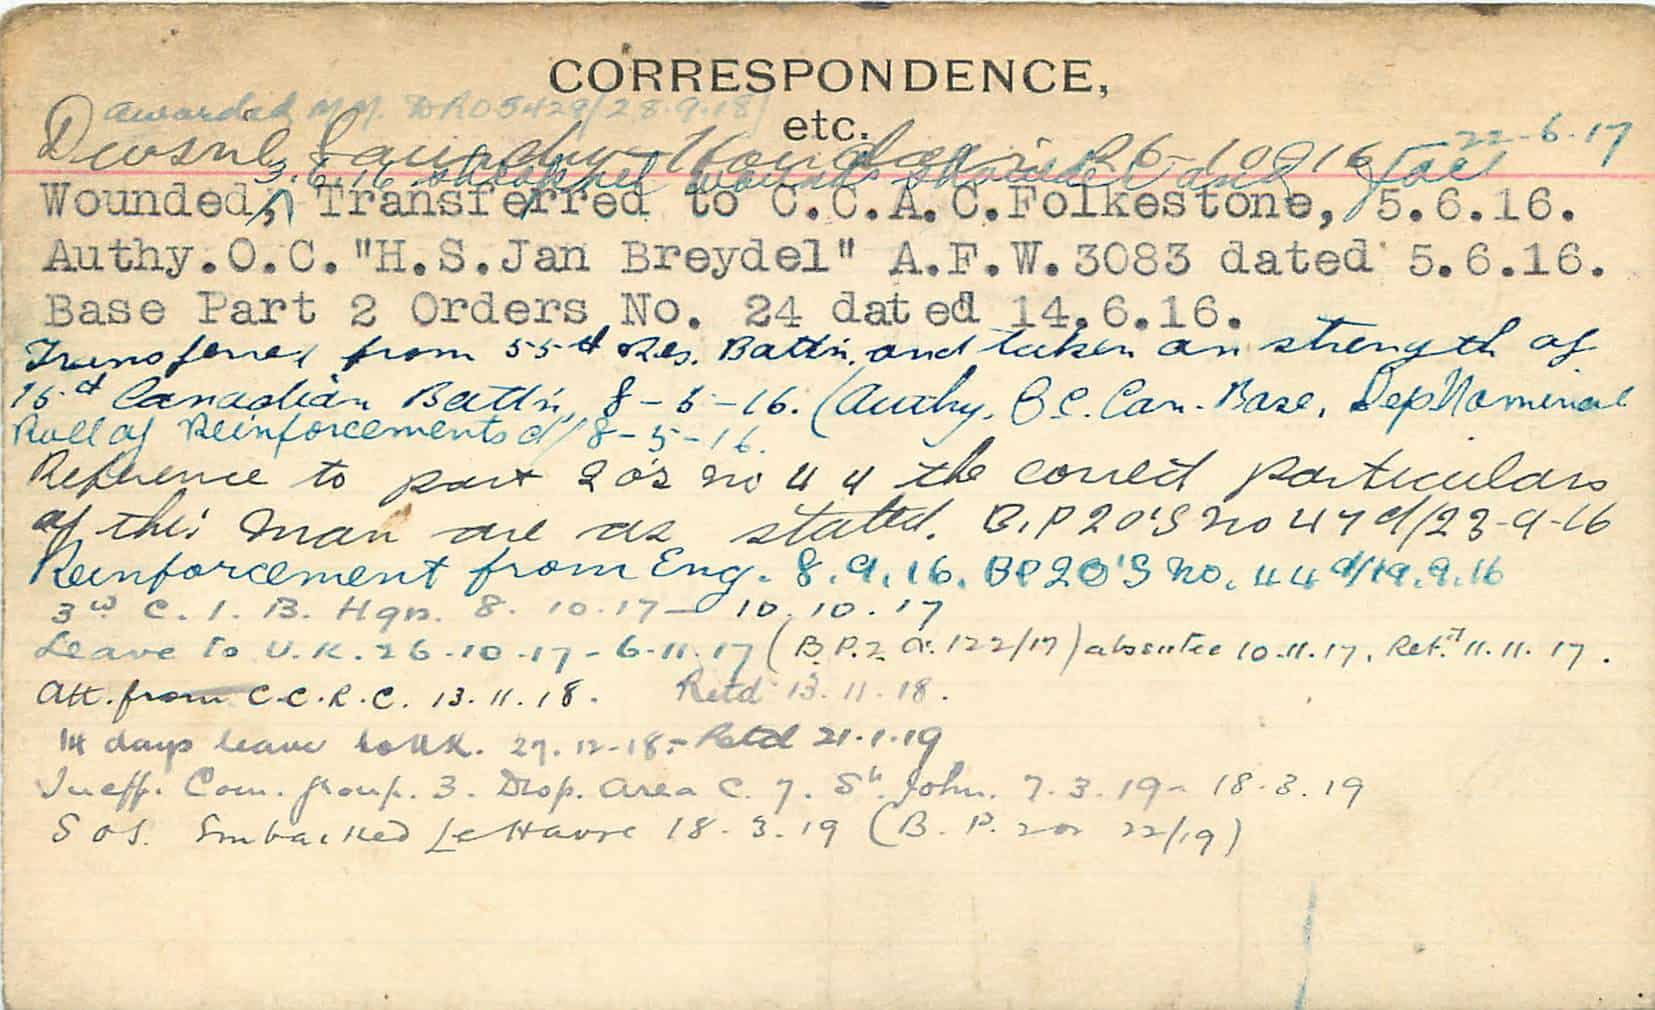 CORRESPONDENCE,
etc.
awarded M.M. DRO5429/28.9.18
26-10-16
22-6-17
3.6.16 shrapnel wounds shoulder and face
Wounded, Transferred to C.C.A.C.Folkestone, 5.6.16.
Authy.O.C."H.S.Jan Breydel" A.F.W.3083 dated 5.6.16.
Base Part 2 Orders No. 24 dated 14.6.16.
Transferred from 55th Res. Battn. and taken on strength of
Canadian Battn, 8-5-16. (Authy. O C. Can. Base, Dep Nominal
Roll of Reinforcements d/8-5-16.
Reference to part 2 o's no 44 the correct particulars
of this man are as stated. B.P 2 O'S no 47 d/23-9-16
Reinforcement from Eng. 8.9.16. BP 2 O'S No. 44 d/19.9.16
3rd C. I. B. Hqrs. 8.10.17 - 10.10.17
Leave to U.K. 26-10-17 - 6-11-17 (B.P.2 Or. 122/17) absentee 10.11.17. Ret.d 11.11.17.
Att. from C.C.R.C. 13.11.18. Retd 13.11.18.
14 days leave to UK. 27.12-18 - Retd 21.1.19
Ineff. Com. group. 3. Disp. Area C. 7. St. John. 7.3.19 - 18.3.19
SOS. Embarked Le Havre 18.3.19 (B.P. 2 or 22/19)